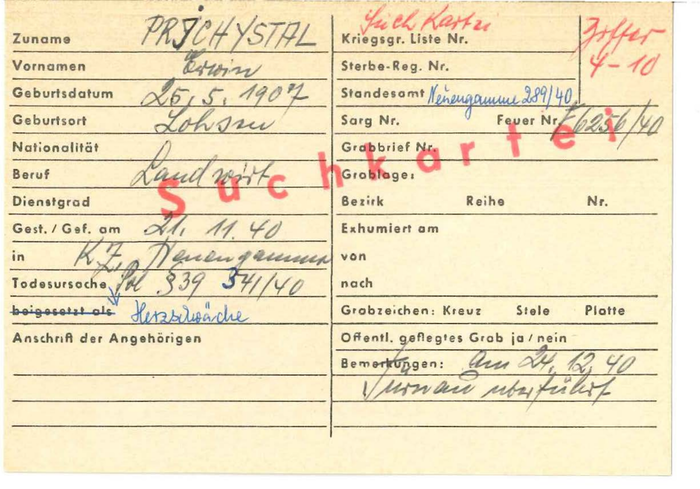 Such Karte
Ziffer
4-10
Zuname PRJCHYSTAL
Vornamen Erwin
Geburtsdatum 25. 5. 1907
Geburtsort
Nationalität
Beruf Landwirt
Dienstgrad
Gest. / Gef. am 21. 11. 40
in KZ. Neuengamme
Todesursache Pol §39 341/40
beigesetzt als Herzschwäche
Anschrift der Angehörigen
Kriegsgr. Liste Nr.
Sterbe-Reg. Nr.
Standesamt Neuengamme 289/40
Sarg Nr. Feuer Nr. F6256/40
Grabbrief Nr.
Grablage:
Bezirk Reihe Nr.
Exhumiert am
von
nach
Grabzeichen: Kreuz Stele Platte
Öffentl. gepflegtes Grab ja / nein
Bemerkungen: am 24. 12. 40
überführt
Suchkartei